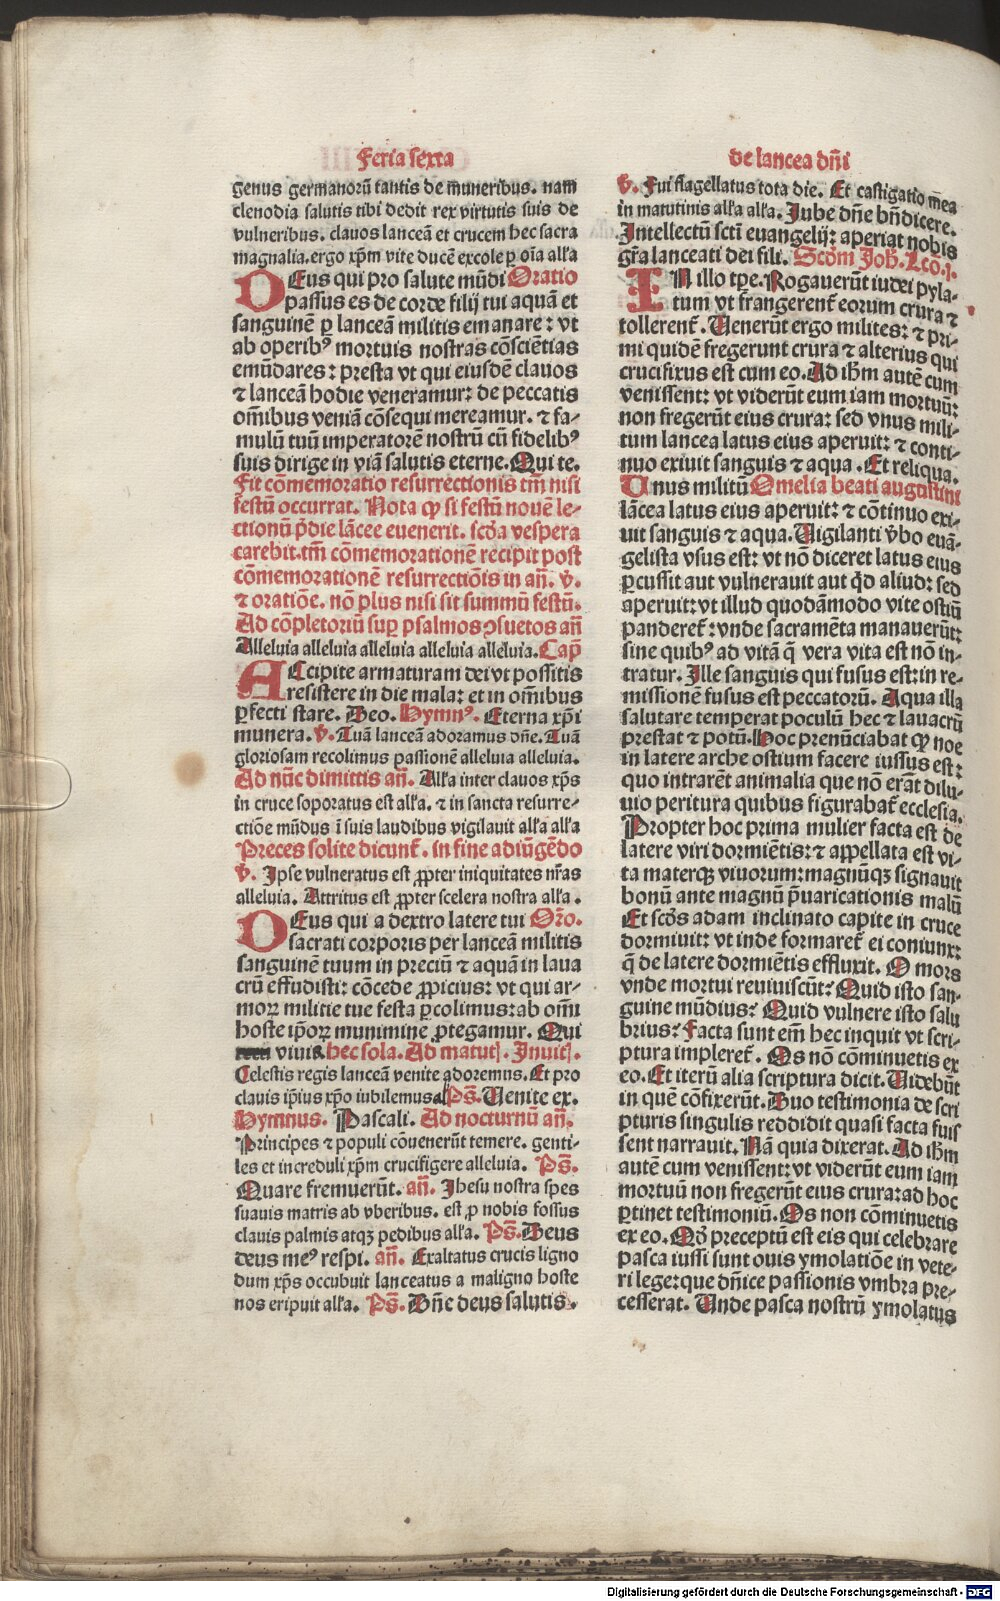 Feria sexta
genus germanorū tantis de muneribus. nam
clenodia salutis tibi dedit rex virtutis suis de
vulneribus. clauos lanceā et crucem hec sacra
magnalia. ergo xp̄m vite ducē excole ꝑ oīa all'a
DEus qui pro salute mūdi Oratio
passus es de corde filij tui aquā et
sanguinē ꝑ lanceā militis emanare: vt
ab operibꝰ mortuis nostras cōsciētias
emūdares: presta vt qui eiusdē clauos
⁊ lanceā hodie veneramur: de peccatis
om̄ibus veniā cōsequi mereamur. ⁊ fa-
mulū tuū imperatorē nostrū cū fidelibꝰ
suis dirige in viā salutis eterne. Qui te.
Fit cōmemoratio resurrectionis tm̄ nisi
festū occurrat. Nota ꝙ si festū nouē le-
ctionū p̄die lācee euenerit. scd̄a vespera
carebit. tm̄ cōmemorationē recipit post
cōmemorationē resurrectiōis in an̄. v̄.
⁊ oratiōe. nō plus nisi sit summū festū.
Ad cōpletoriū sup̄ psalmos ꝯsuetos an̄
Alleluia alleluia alleluia alleluia alleluia. Cap̄
ACcipite armaturam dei vt possitis
resistere in die mala: et in om̄ibus
ꝑfecti stare. Deo. Hymnꝰ. Eterna xp̄i
munera. v̄. Tuā lanceā adoramus dn̄e. Tuā
gloriosam recolimus passionē alleluia alleluia.
Ad nūc dimittis an̄. All'a inter clauos xp̄s
in cruce soporatus est all'a. ⁊ in sancta resurre-
ctiōe mūdus ī suis laudibus vigilauit all'a all'a
Preces solite dicunt̄. in fine adiūgēdo
v̄. Ipse vulneratus est ꝓpter iniquitates nr̄as
alleluia. Attritus est ꝓpter scelera nostra all'a.
DEus qui a dextro latere tui Or̄o.
sacrati corporis per lanceā militis
sanguinē tuum in preciū ⁊ aquā in laua
crū effudisti: cōcede ꝓpicius: vt qui ar-
moꝝ militie tue festa ꝑcolimus: ab om̄i
hoste ip̄oꝝ munimine ꝓtegamur. Qui
viuis hec sola. Ad matut̄. Inuit̄.
Celestis regis lanceā venite adoremus. Et pro
clauis ip̄ius xp̄o iubilemus Ps̄. Uenite ex.
Hymnus. Pascali. Ad nocturnū an̄.
Principes ⁊ populi cōuenerūt temere. genti-
les et increduli xp̄m crucifigere alleluia. Ps̄.
Quare fremuerūt. an̄. Ihesu nostra spes
suauis matris ab vberibus. est ꝓ nobis fossus
clauis palmis atqꝫ pedibus all'a. Ps̄. Deus
deus meꝰ respi. an̄. Exaltatus crucis ligno
dum xp̄s occubuit lanceatus a maligno hoste
nos eripuit all'a. Ps̄. Dn̄e deus salutis.
de lancea dn̄i
v̄. Fui flagellatus tota die. Et castigatio mea
in matutinis all'a all'a. Iube dn̄e bn̄dicere.
Intellectū sct̄i euangelij: aperiat nobis
gr̄a lanceati dei fili. Scd̄m Joh̄. Lco. j.
IN illo tp̄e. Rogauerūt iudei pyla-
tum vt frangerent̄ eorum crura ⁊
tollerent̄. Uenerūt ergo milites: ⁊ pri-
mi quidē fregerunt crura ⁊ alterius qui
crucifixus est cum eo. Ad ih̄m autē cum
venissent: vt viderūt eum iam mortuū:
non fregerūt eius crura: sed vnus mili-
tum lancea latus eius aperuit: ⁊ conti-
nuo exiuit sanguis ⁊ aqua. Et reliqua.
Unus militū Omelia beati augustini
lācea latus eius aperuit: ⁊ cōtinuo exi-
uit sanguis ⁊ aqua. Uigilanti v̄bo euā-
gelista vsus est: vt nō diceret latus eius
ꝑcussit aut vulnerauit aut qd̄ aliud: sed
aperuit: vt illud quodāmodo vite ostiū
panderet̄: vnde sacramēta manauerūt:
sine quibꝰ ad vitā q̄ vera vita est nō in-
tratur. Ille sanguis qui fusus est: in re-
missionē fusus est peccatorū. Aqua illa
salutare temperat poculū hec ⁊ lauacrū
prestat ⁊ potū. Hoc prenūciabat ꝙ noe
in latere arche ostium facere iussus est:
quo intrarēt animalia que nō erāt dilu-
uio peritura quibus figurabat̄ ecclesia.
Propter hoc prima mulier facta est de
latere viri dormiētis: ⁊ appellata est vi-
ta materqꝫ viuorum: magnūqꝫ signauit
bonū ante magnū p̄uaricationis malū
Et scd̄s adam inclinato capite in cruce
dormiuit: vt inde formaret̄ ei coniunx:
q̄ de latere dormiētis effluxit. O mors
vnde mortui reuiuiscūt: Quid isto san-
guine mūdius: Quid vulnere isto salu
brius: Facta sunt em̄ hec inquit vt scri-
ptura impleret̄. Os nō cōminuetis ex
eo. Et iterū alia scriptura dicit. Uidebūt
in quē cōfixerūt. Duo testimonia de scri
pturis singulis reddidit quasi facta fuis
sent narrauit. Nā quia dixerat. Ad ih̄m
autē cum venissent: vt viderūt eum iam
mortuū non fregerūt eius crura: ad hoc
ꝑtinet testimoniū. Os non cōminuetis
ex eo. Qd̄ preceptū est eis qui celebrare
pasca iussi sunt ouis ymolatiōe in vete-
ri lege: que dn̄ice passionis vmbra pre-
cesserat. Unde pasca nostrū ymolatus
Digitalisierung gefördert durch die Deutsche Forschungsgemeinschaft - DFG